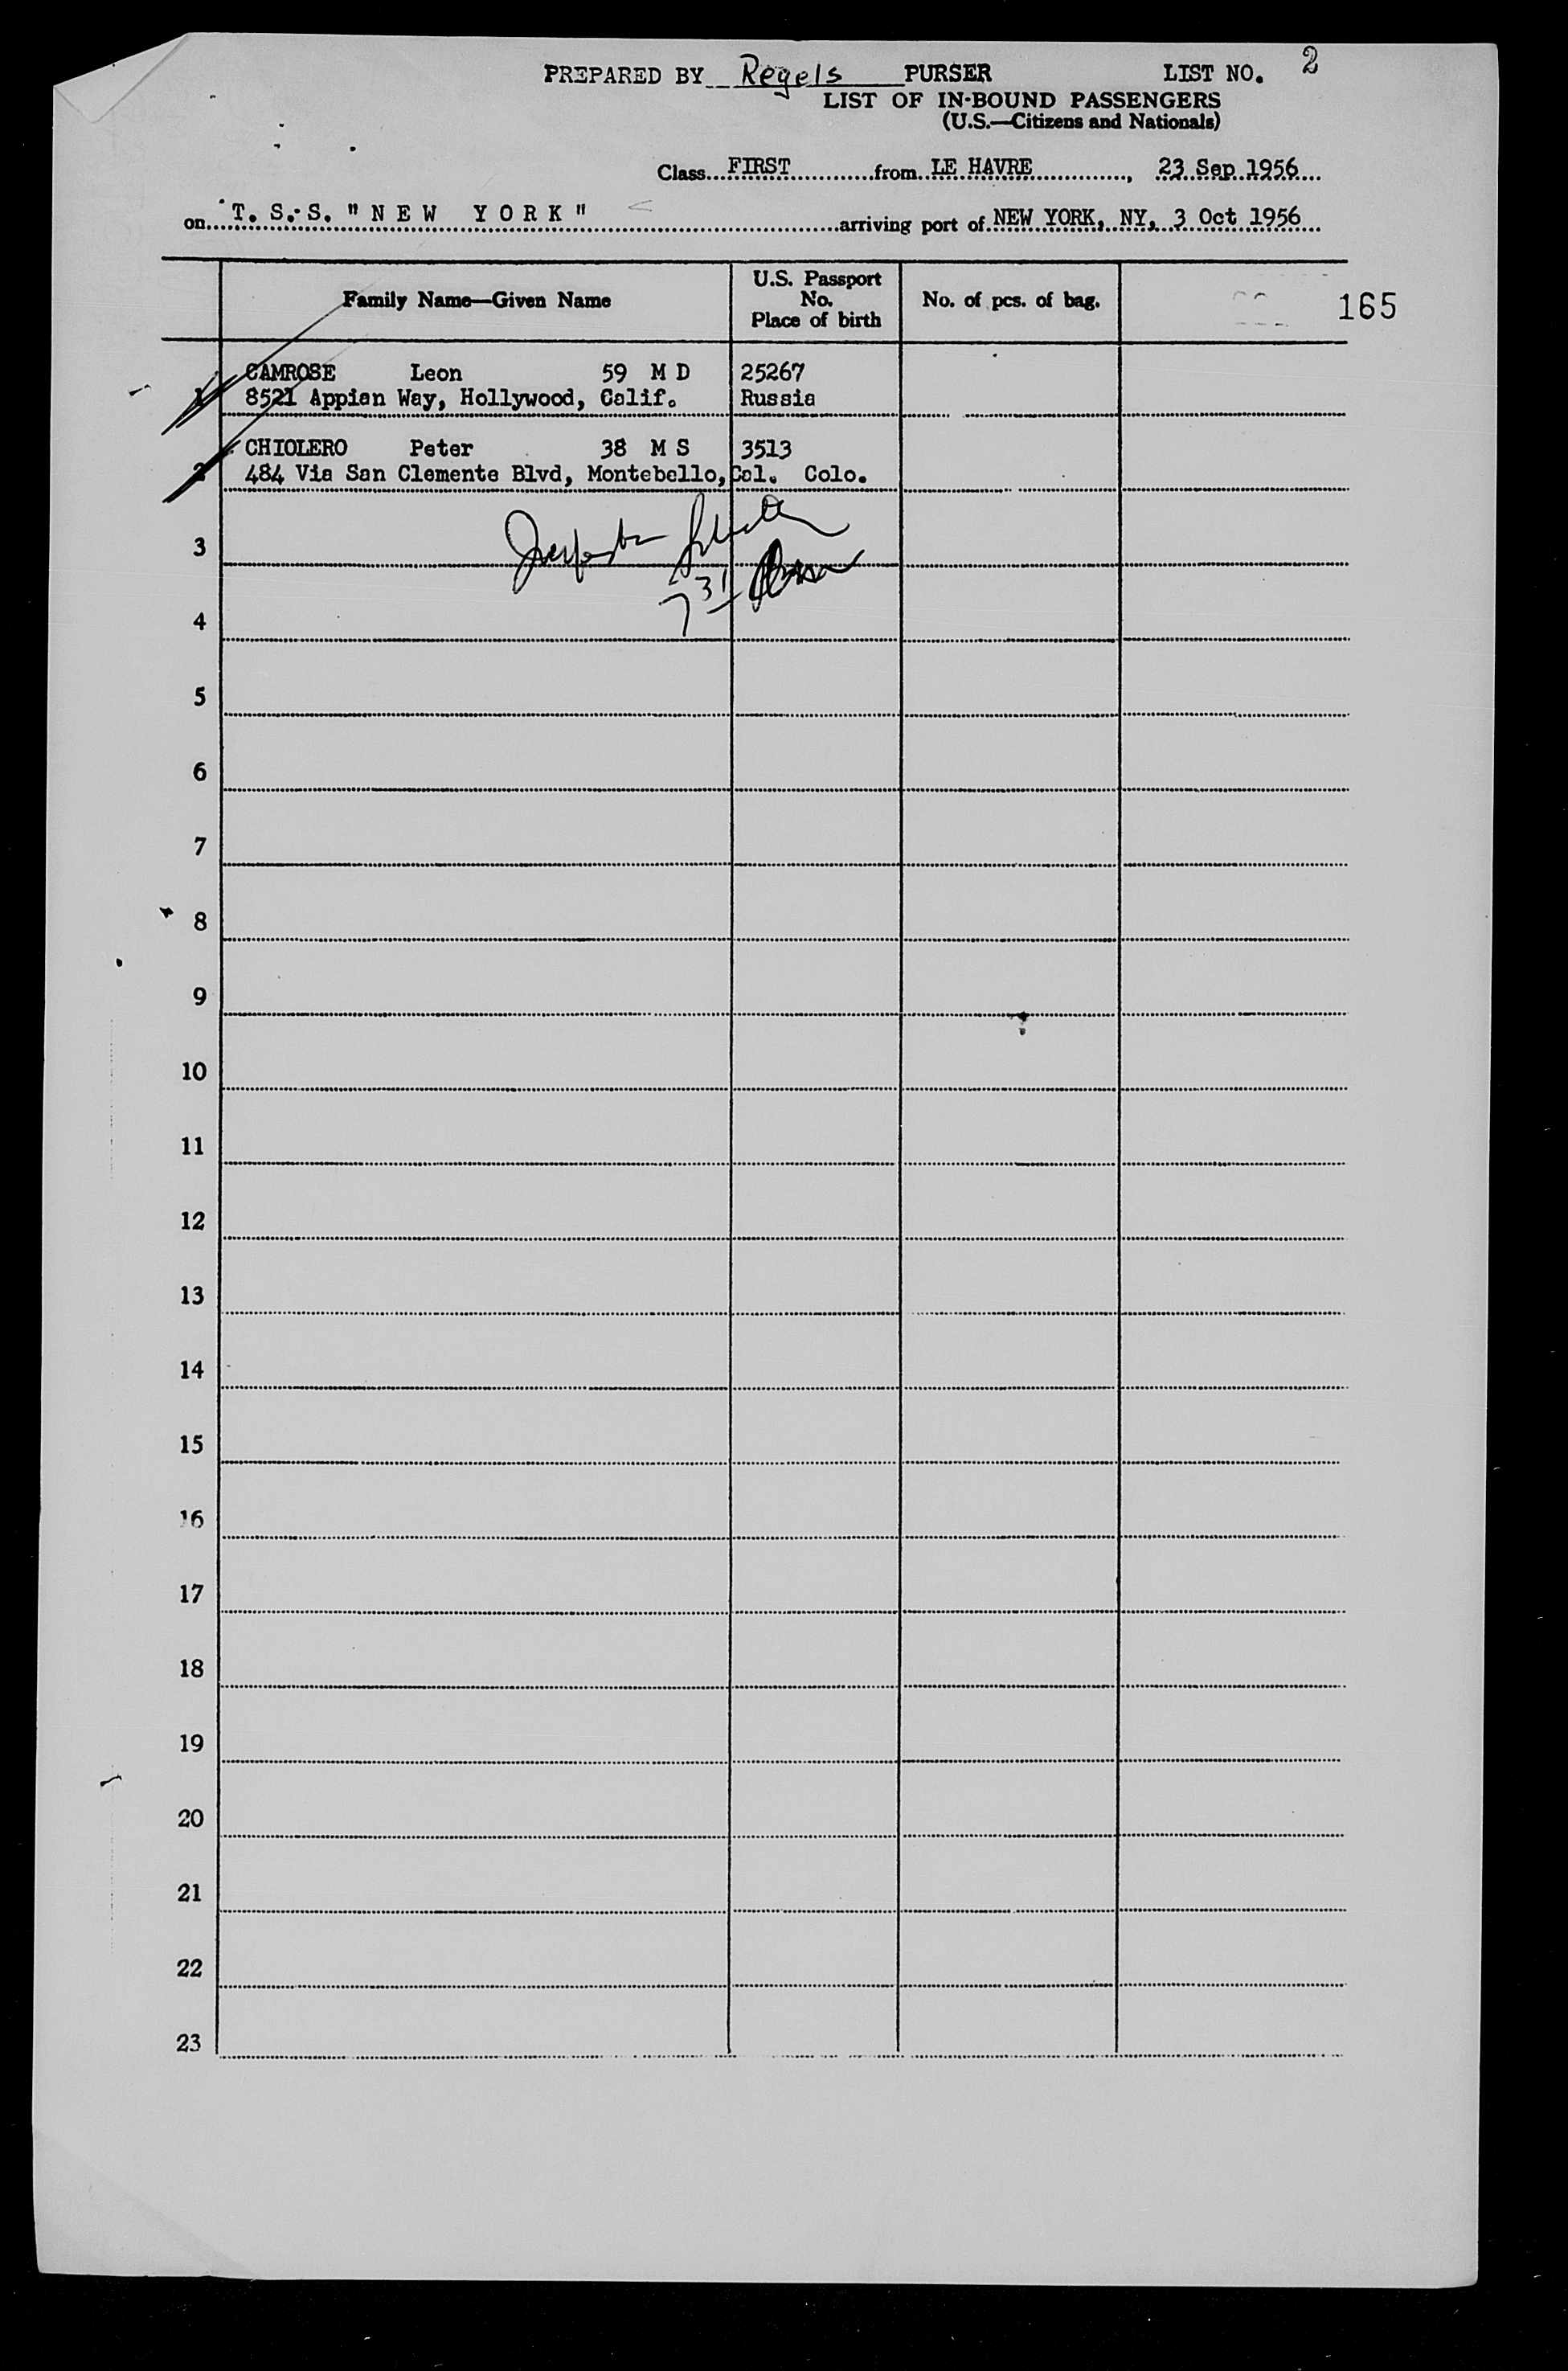 PREPARED BY Regels PURSER LIST NO. 2
LIST OF IN-BOUND PASSENGERS
(U.S.—Citizens and Nationals)
Class FIRST from LE HAVRE, 23 Sep 1956
on T. S. S. "NEW YORK" arriving port of NEW YORK, NY, 3 Oct 1956
Family Name—Given Name
U.S. Passport
No.
Place of birth
No. of pcs. of bag.
165
CAMROSE Leon 59 M D 25267
1 8521 Appian Way, Hollywood, Calif. Russia
CHIOLERO Peter 38 M S 3513
2 484 Via San Clemente Blvd, Montebello, Cal. Colo.
3
731
4
5
6
7
8
9
10
11
12
13
14
15
16
17
18
19
20
21
22
23